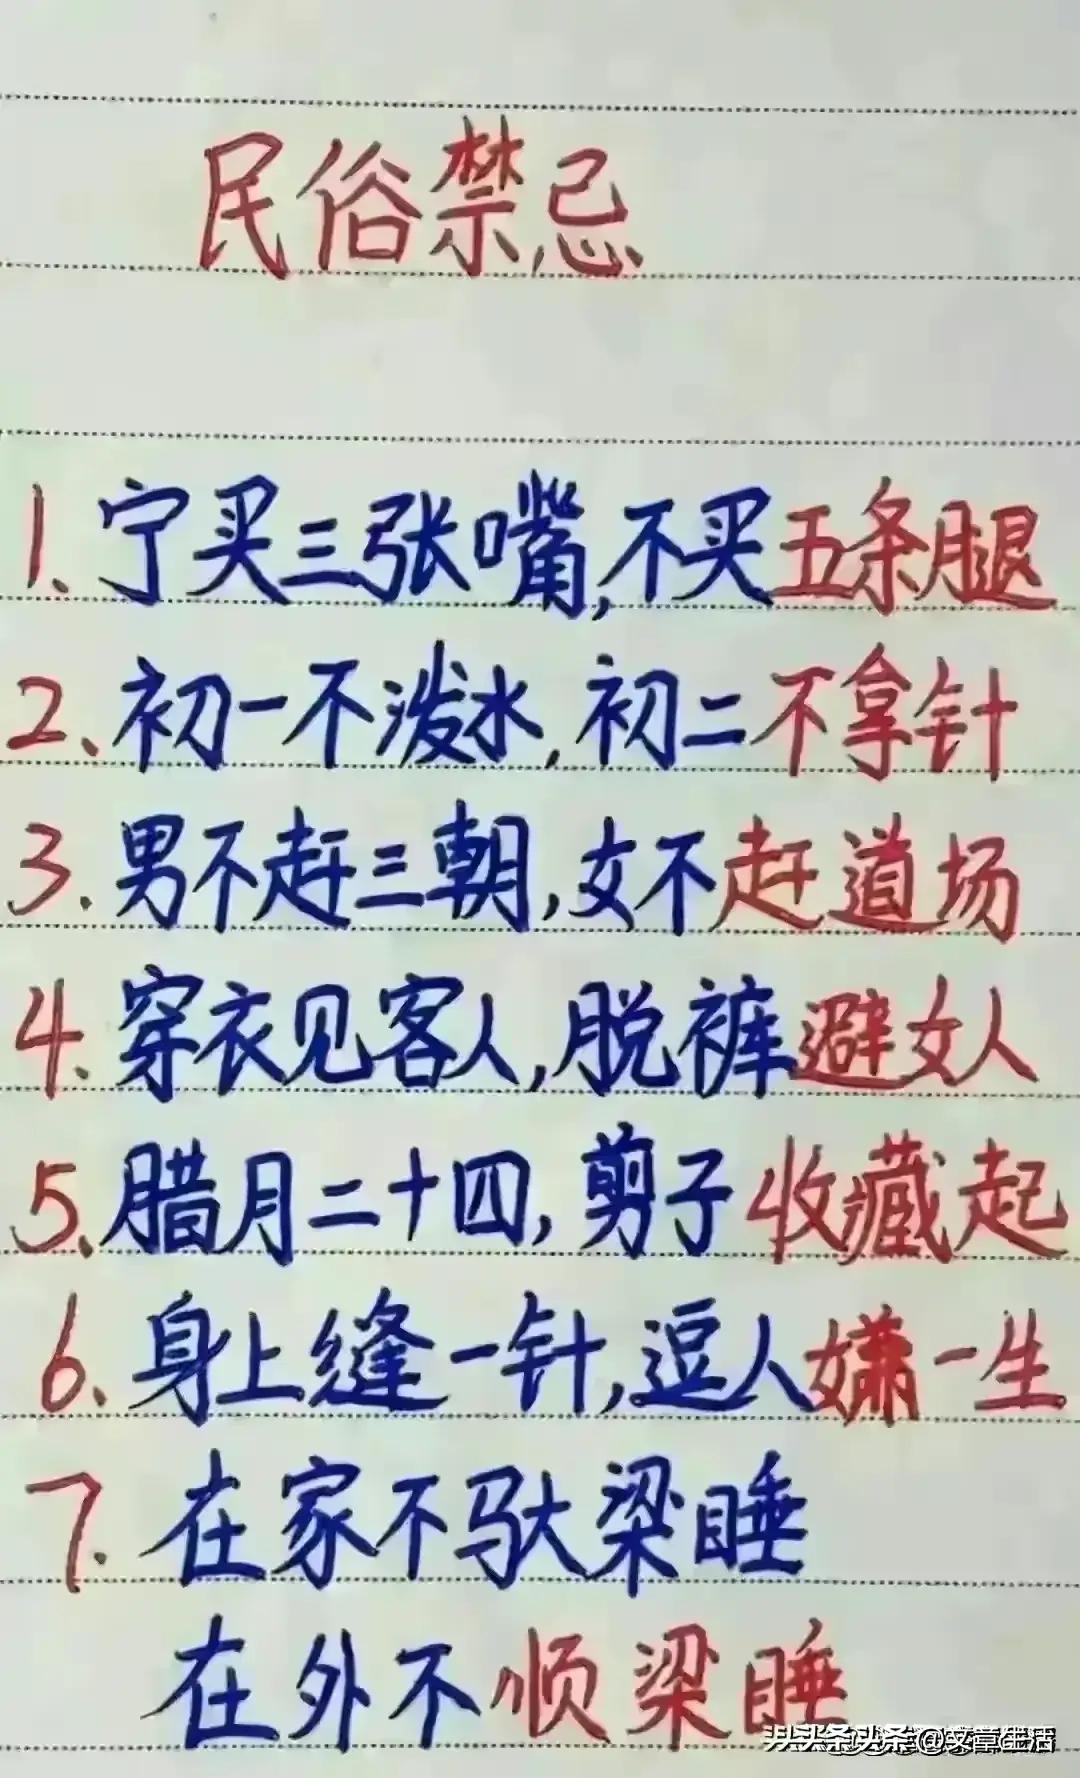 民俗禁忌
1、宁买三张嘴,不买五条腿
2、初一不泼水,初二不拿针
3.男不赶三朝,女不赶道场
4、穿衣见客人,脱裤避女人
5、腊月二十四,剪子收藏起
6、身上缝一针,逗人嫌一生
7.在家不驮梁睡
在外不顺梁睡
头条 @文章生活